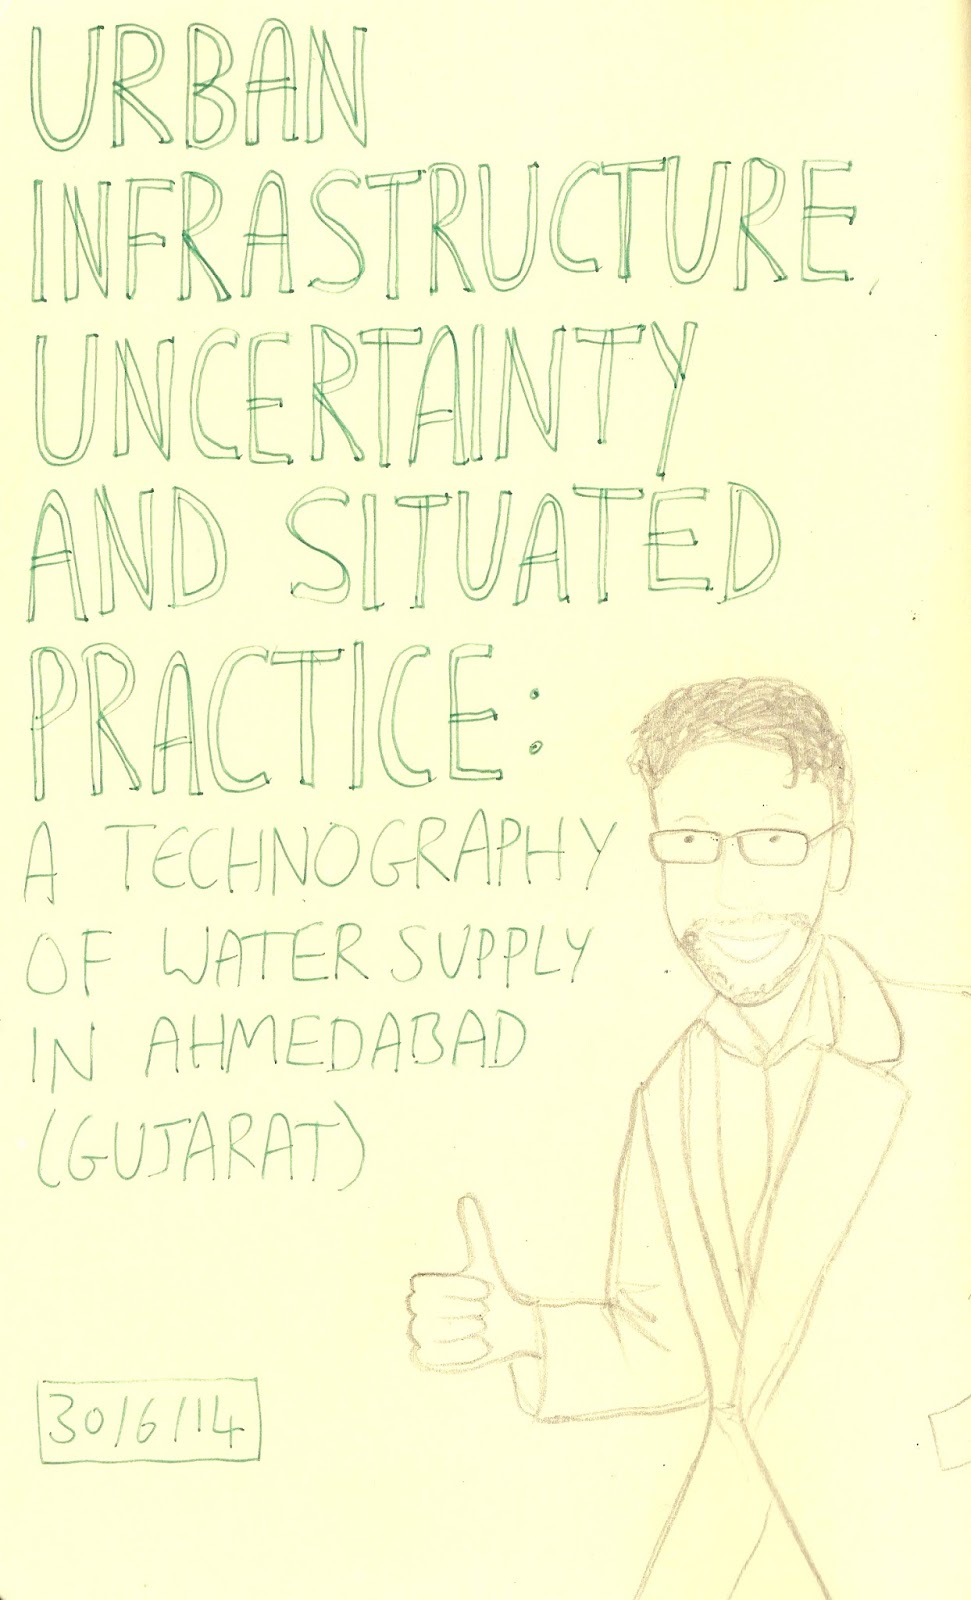 URBAN
INFRASTRUCTURE,
UNCERTAINTY
AND SITUATED
PRACTICE:
A TECHNOGRAPHY
OF WATER SUPPLY
IN AHMEDABAD
(GUJARAT)
30/6/14